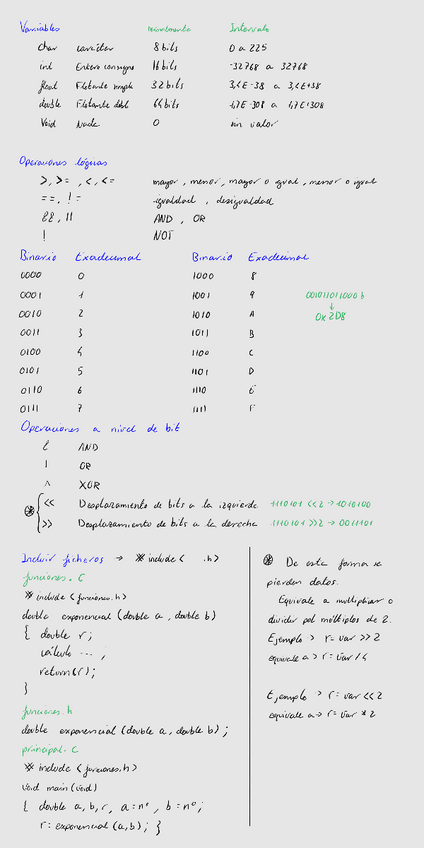 Variables Intervalo
char carácter 8 bits 0 a 225
int Entero con signo 16 bits -32768 a 32768
float Flotante simple 32 bits 3,4E-38 a 3,4E+38
double Flotante dobl 64 bits 1,7E-308 a 1,7E+308
Void Nada 0 sin valor
Operaciones lógicas
>, >=, <, <= mayor, menor, mayor o igual, menor o igual
==, != igualdad, desigualdad
&&, || AND, OR
! NOT
Binario Exadecimal Binario Exadecimal
0000 0 1000 8
0001 1 1001 9 001011011000 b
0010 2 1010 A ↓ 0x2D8
0011 3 1011 B
0100 4 1100 C
0101 5 1101 D
0110 6 1110 E
0111 7 1111 F
Operaciones a nivel de bit
& AND
| OR
^ XOR
<< Desplazamiento de bits a la izquierda 1110101 <<2 → 1010100
>> Desplazamiento de bits a la derecha 1110101 >>2 → 0011101
Incluir ficheros → # include < .h>
funciones.c
# include <funciones.h>
double exponencial (double a, double b)
{ double r;
cálculo ... ;
return(r);
}
funciones.h
double exponencial (double a, double b);
principal.c
# include <funciones.h>
void main (void)
{ double a, b, r, a = nº, b = nº;
r = exponencial (a,b); }
De esta forma se
pierden datos.
Equivale a multiplicar o
dividir por múltiplos de 2.
Ejemplo > r = var >> 2
equivale a > r = var / 4
Ejemplo > r = var << 2
equivale a > r = var * 2